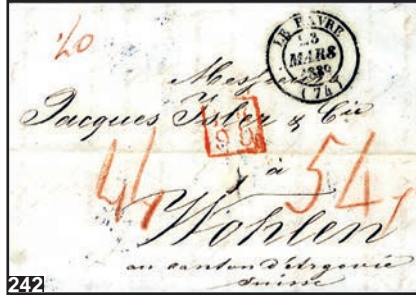 LE HAVRE
23
MARS
(74)
Messieurs
Jacques Isler & Cie
à
54
Wohlen
au canton d'Argovie
Suisse
242